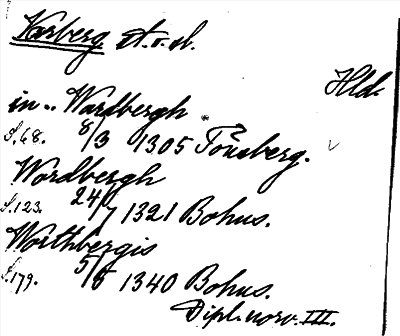 Varberg st. o. sl.
Hld.
in .. Wardbergh
S. 68. 8/3 1305 Tönsberg.
Wardbergh
S. 123. 24/7 1321 Bohus.
Worthbergis
S. 179. 5/5 1340 Bohus.
Dipl. norv. III.